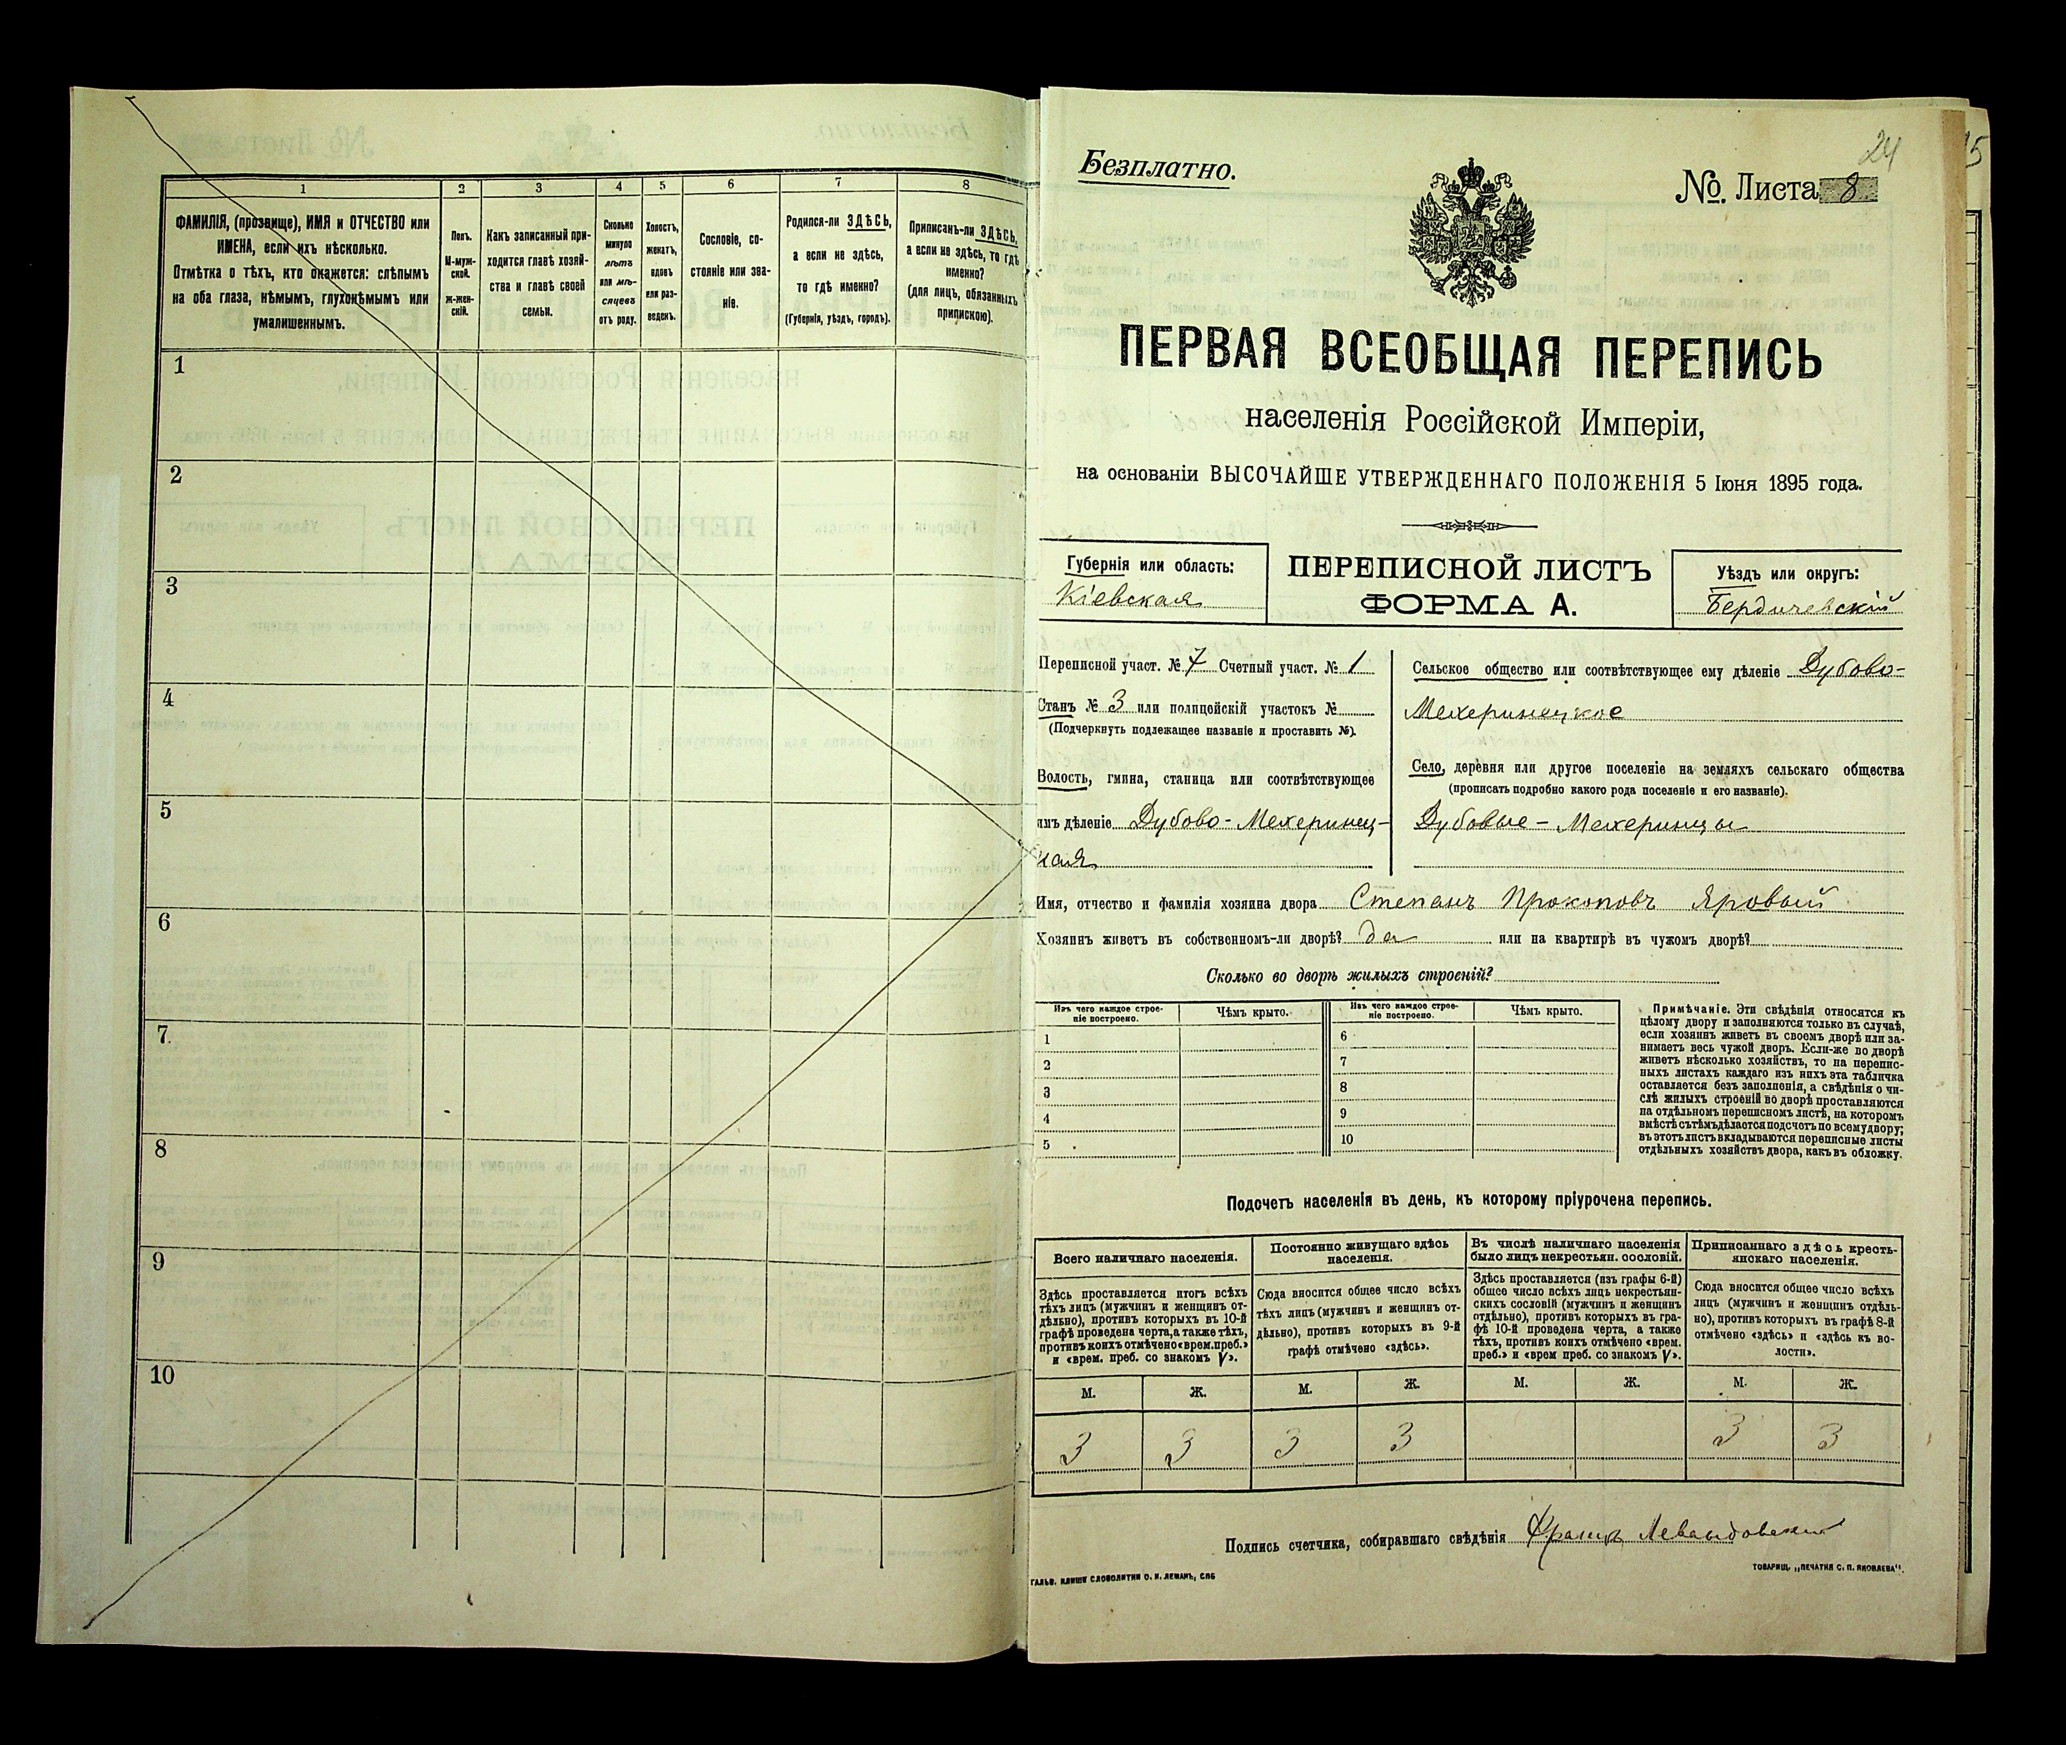 1 2 3 4 5 6 7 8
ФАМИЛІЯ, (прозвище), ИМЯ и ОТЧЕСТВО или
ИМЕНА, если ихъ нѣсколько.
Отмѣтка о тѣхъ, кто окажется: слѣпымъ
на оба глаза, нѣмымъ, глухонѣмымъ или
умалишеннымъ.
Полъ.
М-муж-
ской.
ж-жен-
скій.
Какъ записанный при-
ходится главѣ хозяй-
ства и главѣ своей
семьи.
Сколько
минуло
лѣтъ
или мѣ-
сяцевъ
отъ роду.
Холостъ,
женатъ,
вдовъ
или раз-
веденъ.
Сословіе, со-
стояніе или зва-
ніе.
Родился-ли ЗДѢСЬ,
а если не здѣсь,
то гдѣ именно?
(Губернія, уѣздъ, городъ).
Приписанъ-ли ЗДѢСЬ,
а если не здѣсь, то гдѣ
именно?
(для лицъ, обязанныхъ
припискою).
1
2
3
4
5
6
7
8
9
10
24
15
Безплатно.
№. Листа 8
ПЕРВАЯ ВСЕОБЩАЯ ПЕРЕПИСЬ
населенія Россійской Имперіи,
на основаніи ВЫСОЧАЙШЕ УТВЕРЖДЕННАГО ПОЛОЖЕНІЯ 5 Іюня 1895 года.
Губернія или область:
Кіевская
ПЕРЕПИСНОЙ ЛИСТЪ
ФОРМА А.
Уѣздъ или округъ:
Бердичевскій
Переписной участ. № 7 Счетный участ. № 1
Станъ № 3 или полицейскій участокъ №
(Подчеркнуть подлежащее названіе и проставить №).
Волость, гмина, станица или соотвѣтствующее
имъ дѣленіе Дубово-Мехеринец-
кая
Сельское общество или соотвѣтствующее ему дѣленіе Дубово-
Мехеринецкое
Село, деревня или другое поселеніе на земляхъ сельскаго общества
(прописать подробно какого рода поселеніе и его названіе).
Дубовые-Мехеринцы
Имя, отчество и фамилія хозяина двора Степанъ Прокоповъ Яровый
Хозяинъ живетъ въ собственномъ-ли дворѣ? да или на квартирѣ въ чужомъ дворѣ?
Сколько во дворѣ жилыхъ строеній?
Изъ чего каждое строе-
ніе построено.
Чѣмъ крыто.
Изъ чего каждое строе-
ніе построено.
Чѣмъ крыто.
1 6
2 7
3 8
4 9
5 10
Примѣчаніе. Эти свѣдѣнія относятся къ
цѣлому двору и заполняются только въ случаѣ,
если хозяинъ живетъ въ своемъ дворѣ или за-
нимаетъ весь чужой дворъ. Если-же во дворѣ
живетъ нѣсколько хозяйствъ, то на перепис-
ныхъ листахъ каждаго изъ нихъ эта табличка
оставляется безъ заполненія, а свѣдѣнія о чи-
слѣ жилыхъ строеній во дворѣ проставляются
на отдѣльномъ переписномъ листѣ, на которомъ
вмѣстѣ съ тѣмъ дѣлается подсчетъ по всему двору;
въ этотъ листъ вкладываются переписные листы
отдѣльныхъ хозяйствъ двора, какъ въ обложку.
Подсчетъ населенія въ день, къ которому пріурочена перепись.
Всего наличнаго населенія.
Постоянно живущаго здѣсь
населенія.
Въ числѣ наличнаго населенія
было лицъ некрестьян. сословій.
Приписаннаго здѣсь кресть-
янскаго населенія.
Здѣсь проставляется итогъ всѣхъ
тѣхъ лицъ (мужчинъ и женщинъ от-
дѣльно), противъ которыхъ въ 10-й
графѣ проведена черта, а также тѣхъ,
противъ коихъ отмѣчено «врем. преб.»
и «врем. преб. со знакомъ V».
Сюда вносится общее число всѣхъ
тѣхъ лицъ (мужчинъ и женщинъ от-
дѣльно), противъ которыхъ въ 9-й
графѣ отмѣчено «здѣсь».
Здѣсь проставляется (изъ графы 6-й)
общее число всѣхъ лицъ некрестьян-
скихъ сословій (мужчинъ и женщинъ
отдѣльно), противъ которыхъ въ гра-
фѣ 10-й проведена черта, а также
тѣхъ, противъ коихъ отмѣчено «врем.
преб.» и «врем преб. со знакомъ V».
Сюда вносится общее число всѣхъ
лицъ (мужчинъ и женщинъ отдѣль-
но), противъ которыхъ въ графѣ 8-й
отмѣчено «здѣсь» и «здѣсь къ во-
лости».
М. Ж. М. Ж. М. Ж. М. Ж.
3 3 3 3 3 3
Подпись счетчика, собиравшаго свѣдѣнія Францъ Левандовскій
ГАЛЬВ. КЛИШЕ СЛОВОЛИТНИ О. И. ЛЕМАНЪ, СПБ
ТОВАРИЩ. „ПЕЧАТНЯ С. П. ЯКОВЛЕВА“.